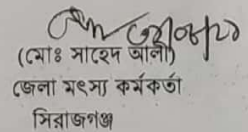 (মোঃ সাহেদ আলী)
জেলা মৎস্য কর্মকর্তা
সিরাজগঞ্জ